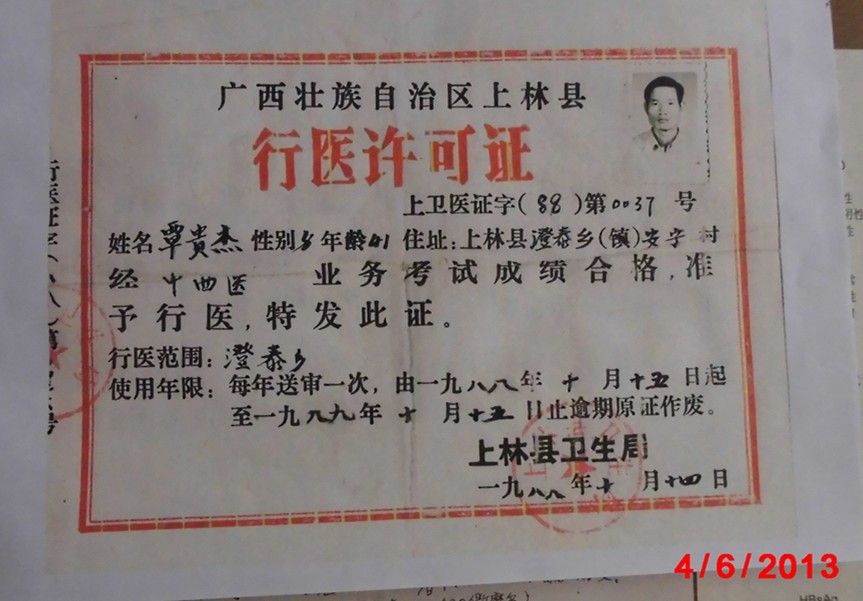 广西壮族自治区上林县
行医许可证
上卫医证字(88)第0037号
姓名 覃贵杰 性别 年龄41 住址:上林县澄泰乡(镇)安宇村
经 中西医 业务考试成绩合格,准
予行医,特发此证。
行医范围:澄泰乡
使用年限:每年送审一次,由一九八八年十月十五日起
至一九八九年十月十五日止逾期原证作废。
上林县卫生局
一九八八年十月十四日
4/6/2013
HBsAg